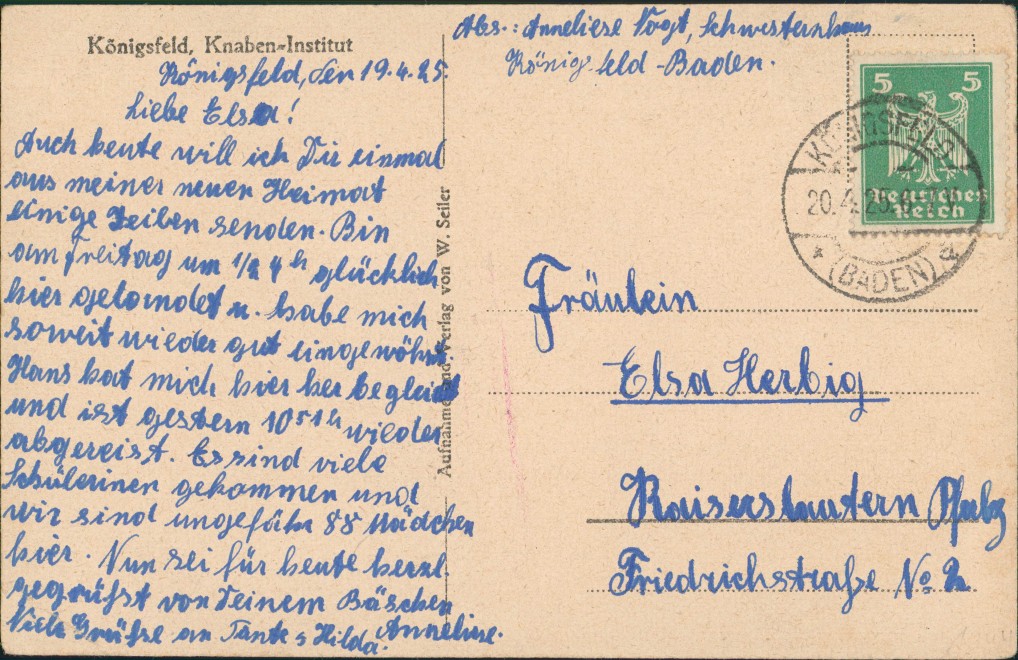 Königsfeld, Knaben=Institut
Königsfeld, den 19.4.25.
Liebe Elsa!
Auch heute will ich Dir einmal
aus meiner neuen Heimat
einige Zeilen senden. Bin
am Freitag um 1/2 4 h glücklich
hier gelandet u. habe mich
soweit wieder gut eingewöhnt
Hans hat mich hier her begleitet
und ist gestern 10 51 h wieder
abgereist. Es sind viele
Schülerinen gekommen und
wir sind ungefähr 88 Mädchen
hier. Nun sei für heute herzl.
gegrüßt von Deinem Bäschen
Viele Grüße an Tante s Hilda. Anneliese.
Aufnahme und Verlag von W. Seiler
Abs.: Anneliese Vogt, Schwesternhaus
Königsfeld-Baden.
5 5
Deutsches
Reich
KÖNIGSFELD
20.4.25.
(BADEN)
Fräulein
Elsa Herbig
Kaiserslautern Pfalz
Friedrichstraße No 2